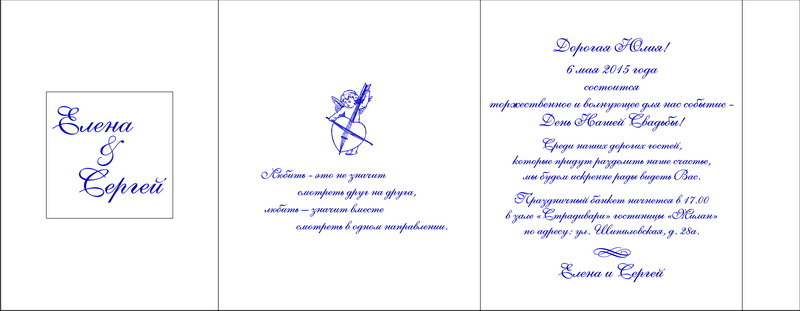 Елена
&
Сергей
Любить - это не значит
смотреть друг на друга,
любить – значит вместе
смотреть в одном направлении.
Дорогая Юлия!
6 мая 2015 года
состоится
торжественное и волнующее для нас событие -
День Нашей Свадьбы!
Среди наших дорогих гостей,
которые придут разделить наше счастье,
мы будем искренне рады видеть Вас.
Праздничный банкет начнется в 17.00
в зале «Страдивари» гостиницы «Милан»
по адресу: ул. Шипиловская, д. 28а.
Елена и Сергей